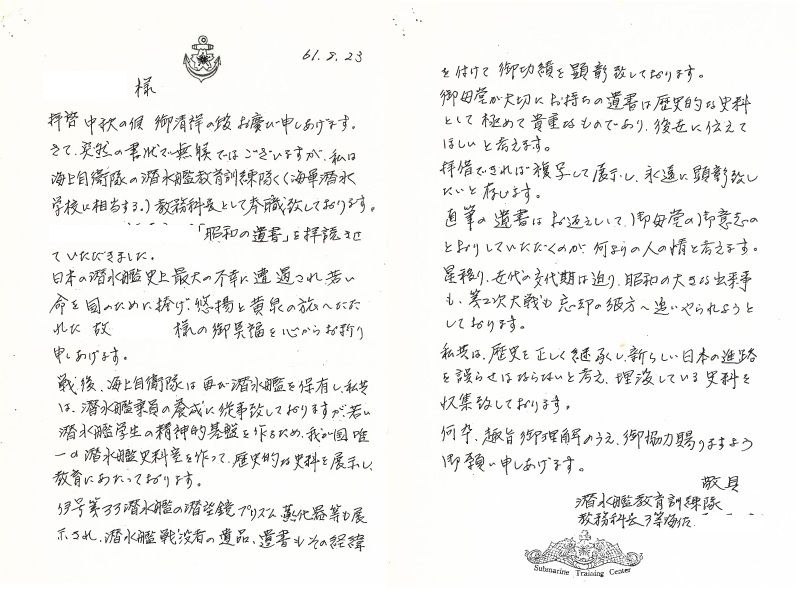 61.9.23
様
拝啓 中秋の候 御清祥の段 お慶び申しあげます。
さて、突然の書状で無躾ではございますが、私は
海上自衛隊の潜水艦教育訓練隊く(海軍潜水
学校に相当する。)教務科長として奉職致しております。
「昭和の遺書」を拝読させ
ていただきました。
日本の潜水艦史上最大の不幸に遭遇され若い
命を国のために捧げ、悠揚と黄泉の旅へたた
れた 故 様の御冥福を心からお祈り
申しあげます。
戦後、海上自衛隊は再び潜水艦を保有し、私共
は、潜水艦乗員の養成に従事致しておりますが、若い
潜水艦学生の精神的基盤を作るため、我が国唯
一の潜水艦史料室を作って、歴史的な史料を展示し、
教育にあたっております。
伊号第33潜水艦の潜望鏡プリズム、気化器等も展
示され、潜水艦戦没者の遺品、遺書もその経緯
を付けて御功績を顕彰致しております。
御母堂が大切にお持ちの遺書は歴史的な史料
として極めて貴重なものであり、後世に伝えて
ほしいと考えます。
拝借できれば複写して展示し、永遠に顕彰致し
たいと存じます。
直筆の遺書はお返えしして、御母堂の御意志の
とおりしていただくのが、何よりの人の情と考えます。
星移り、世代の交代期は迫り、昭和の大きな出来事
も、第2次大戦も忘却の彼方へ追いやられようと
しております。
私共は、歴史を正しく継承し、新らしい日本の進路
を誤らせてはならないと考え、埋没している史料を
収集致しております。
何卒、趣旨御理解のうえ、御協力賜りますよう
御願い申しあげます。
敬具
潜水艦教育訓練隊
教務科長 3等海佐
Submarine Training Center